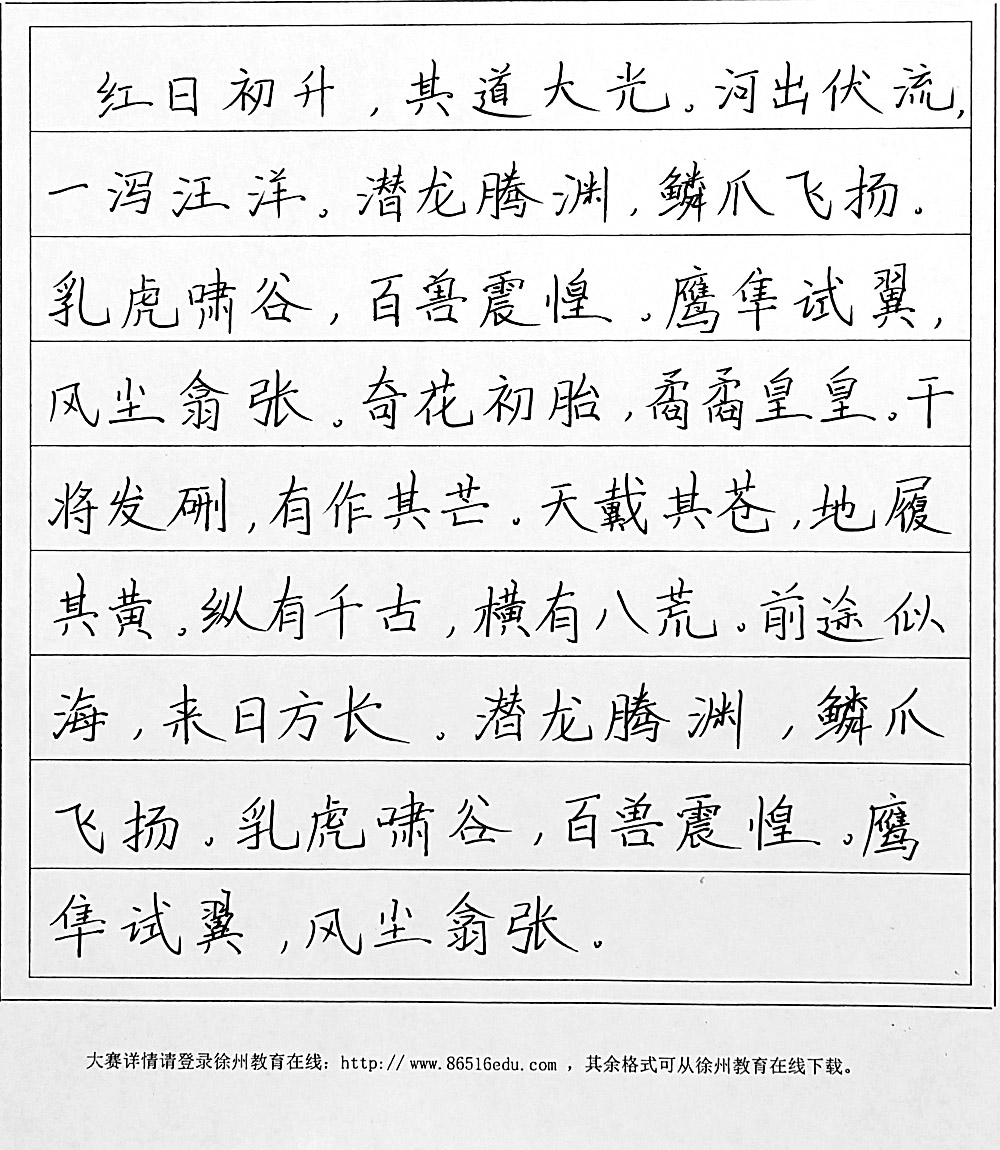 红日初升，其道大光。河出伏流，
一泻汪洋。潜龙腾渊，鳞爪飞扬。
乳虎啸谷，百兽震惶。鹰隼试翼，
风尘翕张。奇花初胎，矞矞皇皇。干
将发硎，有作其芒。天戴其苍，地履
其黄。纵有千古，横有八荒。前途似
海，来日方长。潜龙腾渊，鳞爪
飞扬。乳虎啸谷，百兽震惶。鹰
隼试翼，风尘翕张。
大赛详情请登录徐州教育在线：http://www.86516edu.com ，其余格式可从徐州教育在线下载。